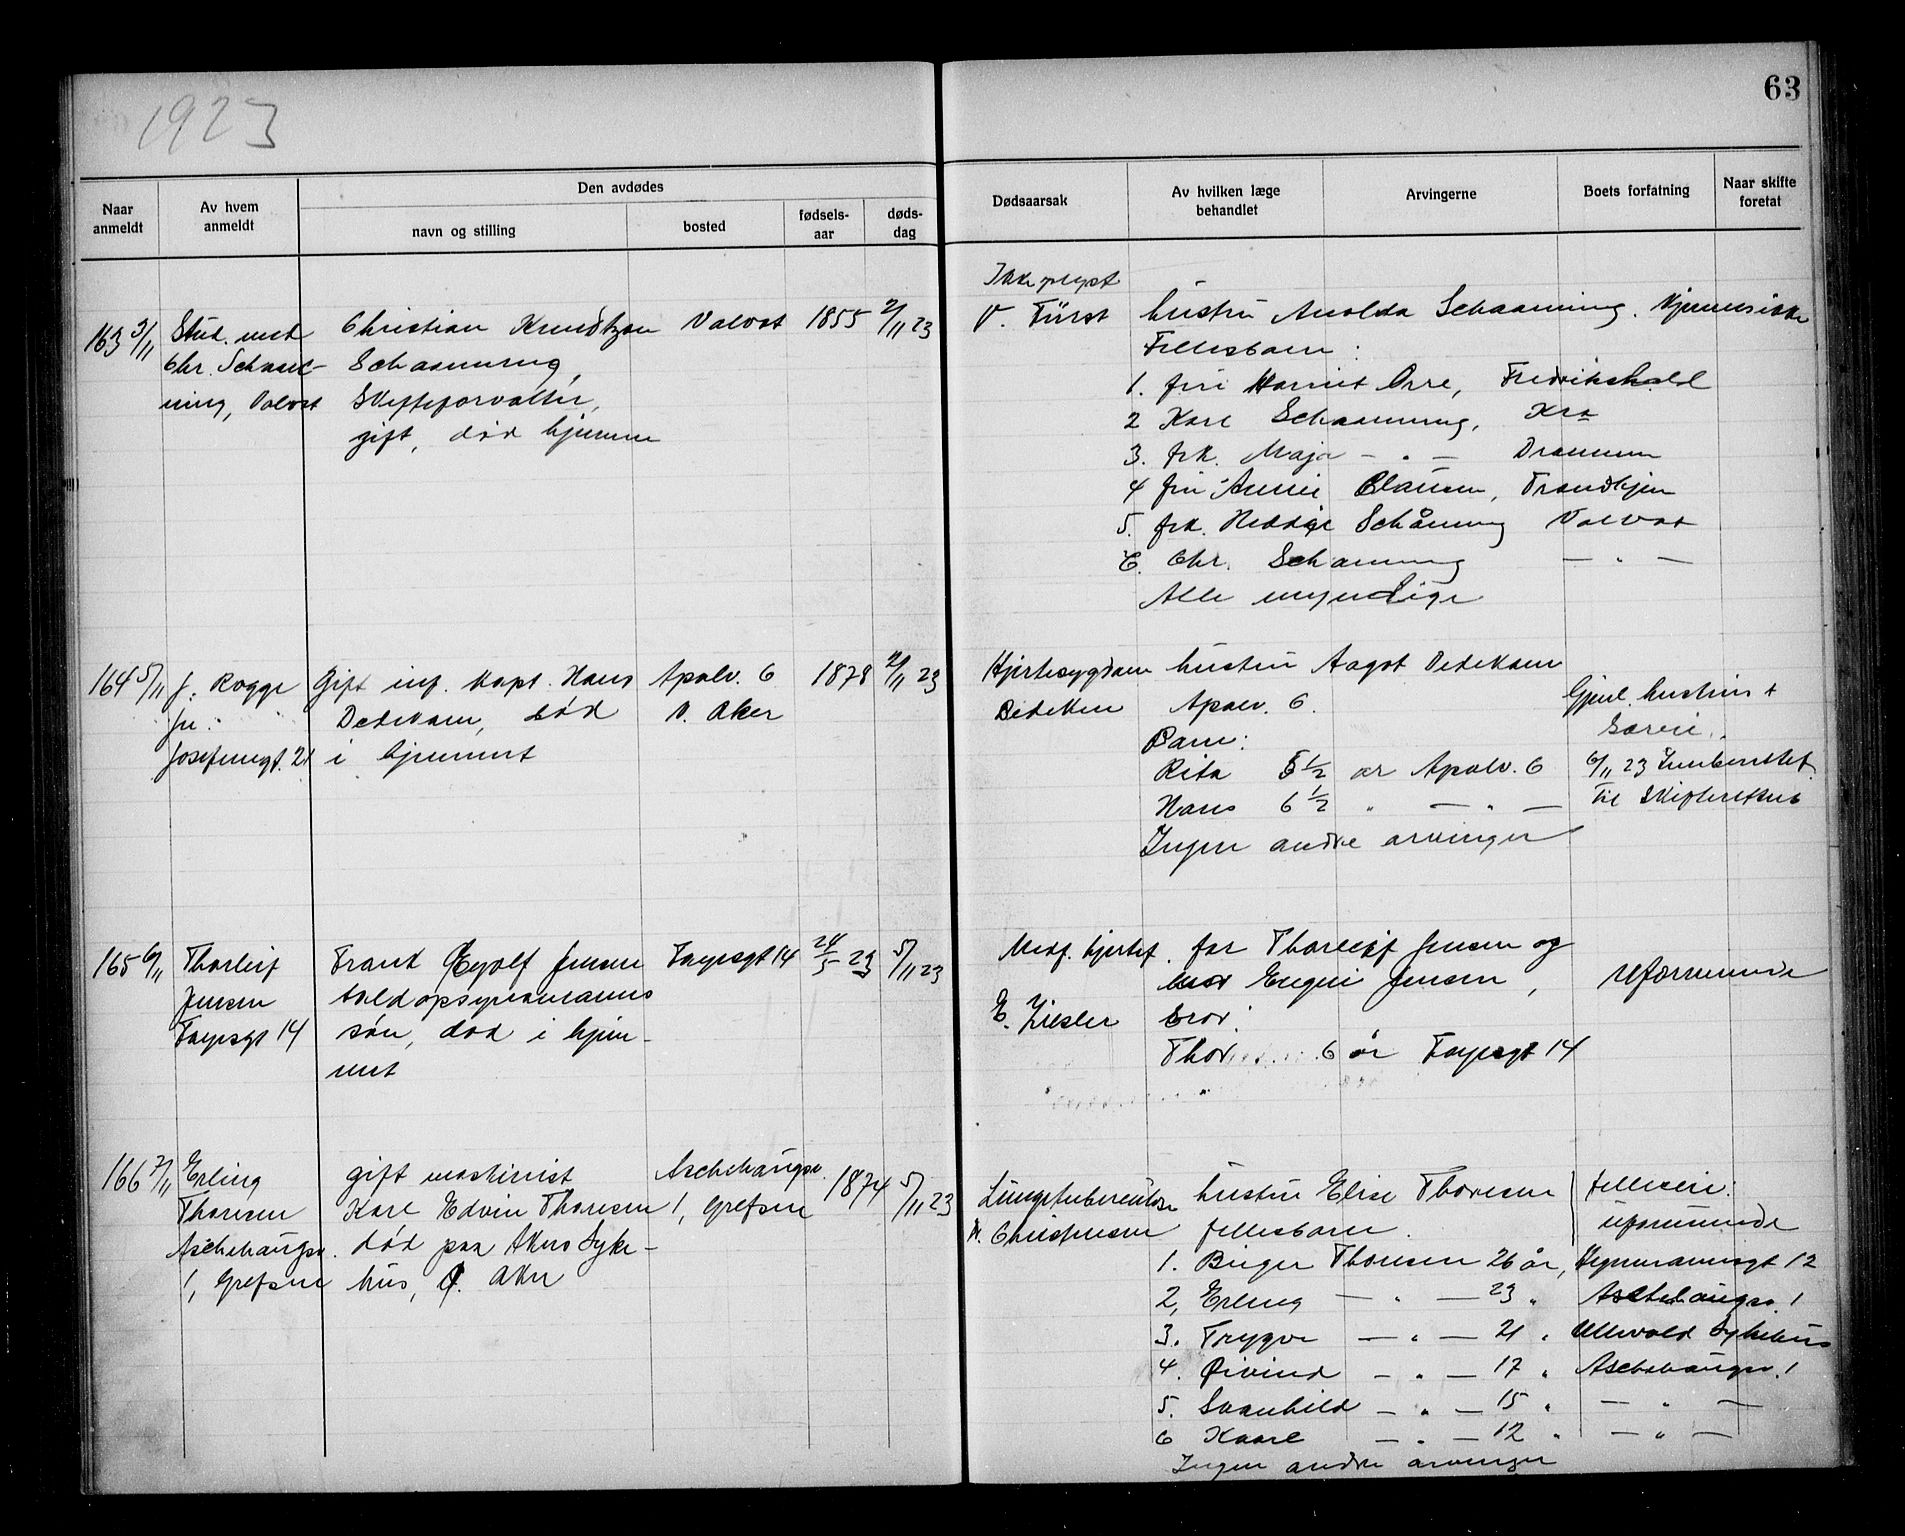 1923
63
Naar anmeldt
Av hvem anmeldt
Den avdødes
navn og stilling
bosted
fødsels-aar
døds-dag
Dødsaarsak
Av hvilken læge behandlet
Arvingerne
Boets forfatning
Naar skifte foretat
Ikke oplyst
163 3/11 Stud. med Christian Knudtzon Volvat 1855 2/11 23 V. Fürst hustru Schaanning.
Chr. Schaan- Schaanning, Fellesbarn:
ning, Volvat Skifteforvalter, 1. fru Harriet Orre, Fredrikshald
gift, død hjemme 2 Karl Schaanning, Kra
3. frk. Maja — " — Drammen
4 fru Annie Clausen, Trondhjem
5. frk. Heddie Schåning Volvat
6. Chr. Schaning — " —
Alle myndige
164 5/11 J. Rogge Gift inf. kapt. Hans Apalv. 6 1878 2/11 23 Hjertesygdom hustru Aagot Dedekam
jr. Dedekam, død V. Aker Dedeken Apalv. 6. Gjenl. hustrus
Josefinegt. 21 i hjemmet Barn: særeie.
Rita 8 1/2 år Apalv. 6 6/11 23 Innberettet
Hans 6 1/2 " — " — til Skifteretten
Ingen andre arvinger
165 6/11 Thorleif Frant Eyolf Jensen Fayesgt 14 24/5 - 23 5/11 23 Medf. hjertef. far Thorleif Jensen og
Jensen toldopsynsmanns mor Eugeni Jensen, uformuende
Fayesgt 14 søn, død i hjem- E. Ziesler bror:
met Thor 6 år Fayesgt 14
166 7/11 Erling gift maskinist Aschehougsv. 1874 5/11 23 Lungetuberculose hustru Elise Thoresen felleseie.
Thoresen Karl Edvin Thoresen 1, Grefsen N. Christensen fellesbarn. uformuende
Aschehougsv. død paa Akers Syke-
1, Grefsen hus, Ø. Aker
1. Birger Thoresen 26 år, 12
2, Erling — " — 23 " Aschehougsv. 1
3. Trygve — " — 21 " Ullevold Sykehus
4. Øivind — " — 17 " Aschehougsv. 1
5. Svanhild — " — 15 " — " —
6 Kaare — " — 12 " — " —
Ingen andre arvinger